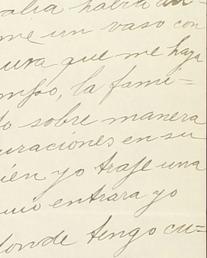 alia había
me un vaso con
ura que me haga
empo, la fami-
do sobre manera
uraciones en su
ién yo traje una
entrara yo
donde tengo cu-